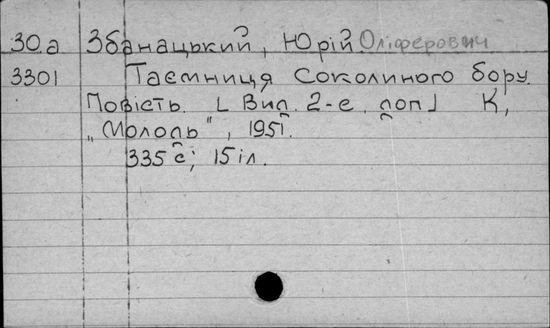 30а Збанацький, Юрій Оліферович
3301 Таємниця Соколиного бору.
Повість. [Вип. 2-е, доп] К,
„Молодь", 1951.
335 с; 15 іл.